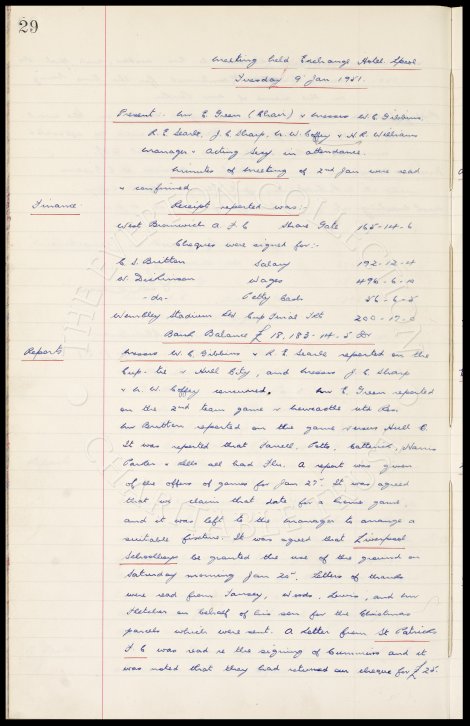 29
Meeting held Exchange Hotel L'pool
Tuesday 9 Jan 1951.
Present. Mr E. Green (Chair) & Messrs W. C. Gibbins,
R. E. Searle, J. C. Sharp, N. W. Coffey & H. R. Williams
Manager & Acting Secy in attendance.
Minutes of Meeting of 2nd Jan were read
& confirmed
Finance. Receipt reported was:-
West Bromwich A F C Share Gate 165-14-6
Cheques were signed for:-
C. S. Britton Salary 192-12-4
W. Dickinson Wages 496-6-10
-do- Petty Cash 56-6-5
Wembley Stadium Ltd Cup Final Tkt 200-17-0
Bank Balance £18,183-14-5 Dr
Reports Messrs W. C. Gibbins & R. E. Searle reported on the
Cup-tie v Hull City, and Messrs J. C. Sharp
& N. W. Coffey concurred. Mr E. Green reported
on the 2nd team game v Newcastle Utd Res.
Mr Britton reported on the game versus Hull C.
It was reported that Farrell, Potts, Catterick, Harris
Parker & Wells all had Flu. A report was given
of the offers of games for Jan 27. It was agreed
that we claim that date for a home game
and it was left to the Manager to arrange a
suitable fixture. It was agreed that Liverpool
Schoolboys be granted the use of the ground on
Saturday morning Jan 20. Letters of thanks
were read from Tansey, Woods, Lewis, and Mr
Fletcher on behalf of his son for the Christmas
parcels which were sent. A letter from St Patricks
F C was read re the signing of Cummins and it
was noted that they had returned our cheque for £25.
THE EVERTON COLLECTION